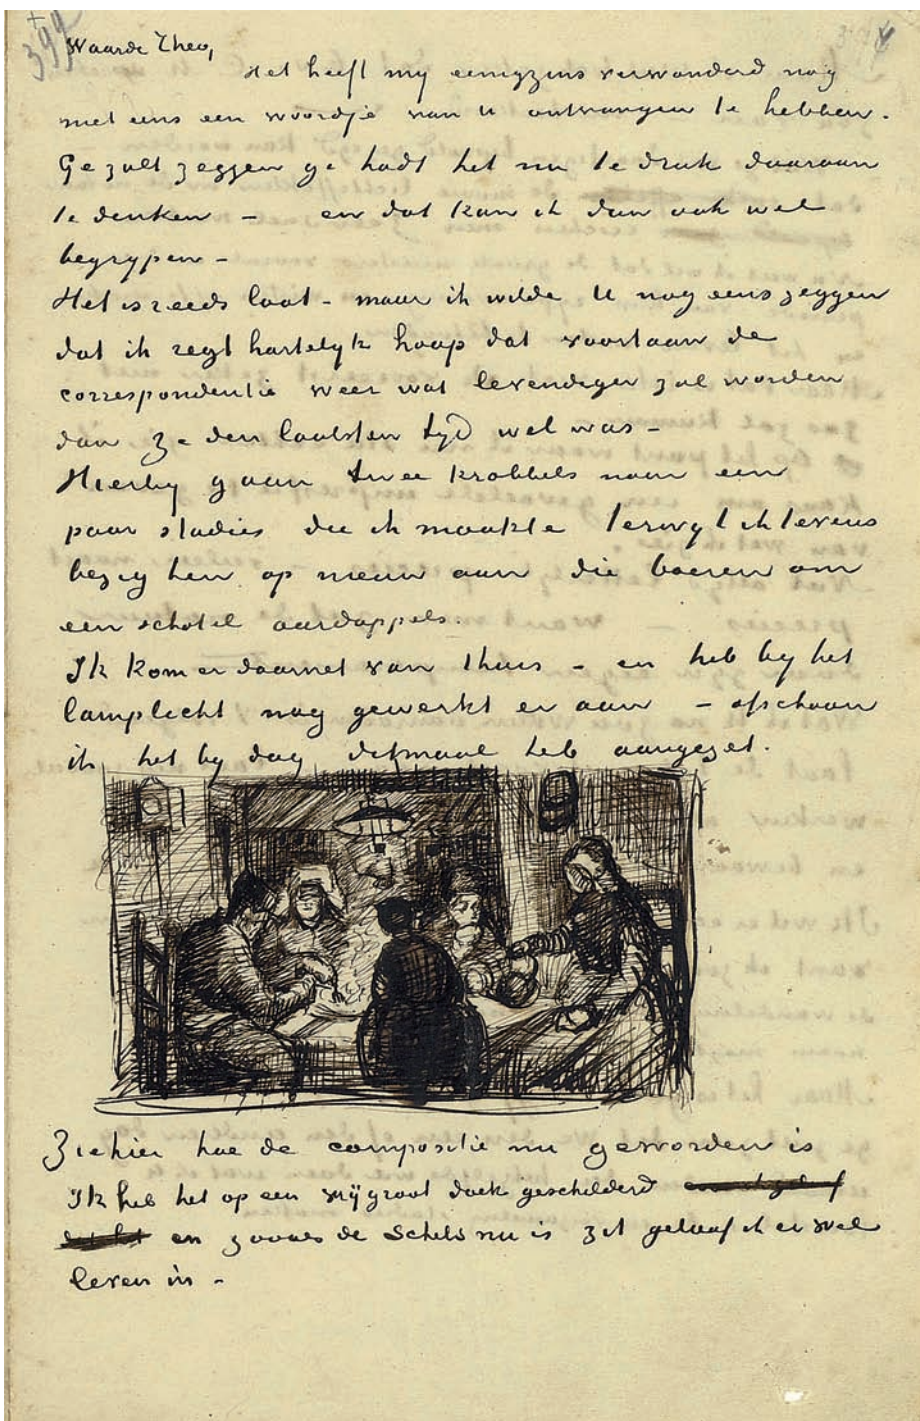 399
Waarde Theo,
Het heeft my eenigzins verwonderd nog
niet eens een woordje van U ontvangen te hebben.
Ge zult zeggen ge hadt het nu te druk daaraan
te denken – en dat kan ik dan ook wel
begrypen –
Het is reeds laat – maar ik wilde U nog eens zeggen
dat ik regt hartelyk hoop dat voortaan de
correspondentie weer wat levendiger zal worden
dan ze den laatsten tyd wel was –
Hierby gaan twee krabbels naar een
paar studies die ik maakte terwyl ik tevens
bezig ben op nieuw aan die boeren om
een schotel aardappels.
Ik kom er daarnet van thuis – en heb by het
lamplicht nog gewerkt er aan – ofschoon
ik het by dag ditmaal heb aangezet.
Ziehier hoe de compositie nu geworden is
Ik heb het op een vrij groot doek geschilderd
en zooals de schets nu is zit geloof ik er wel
leven in –